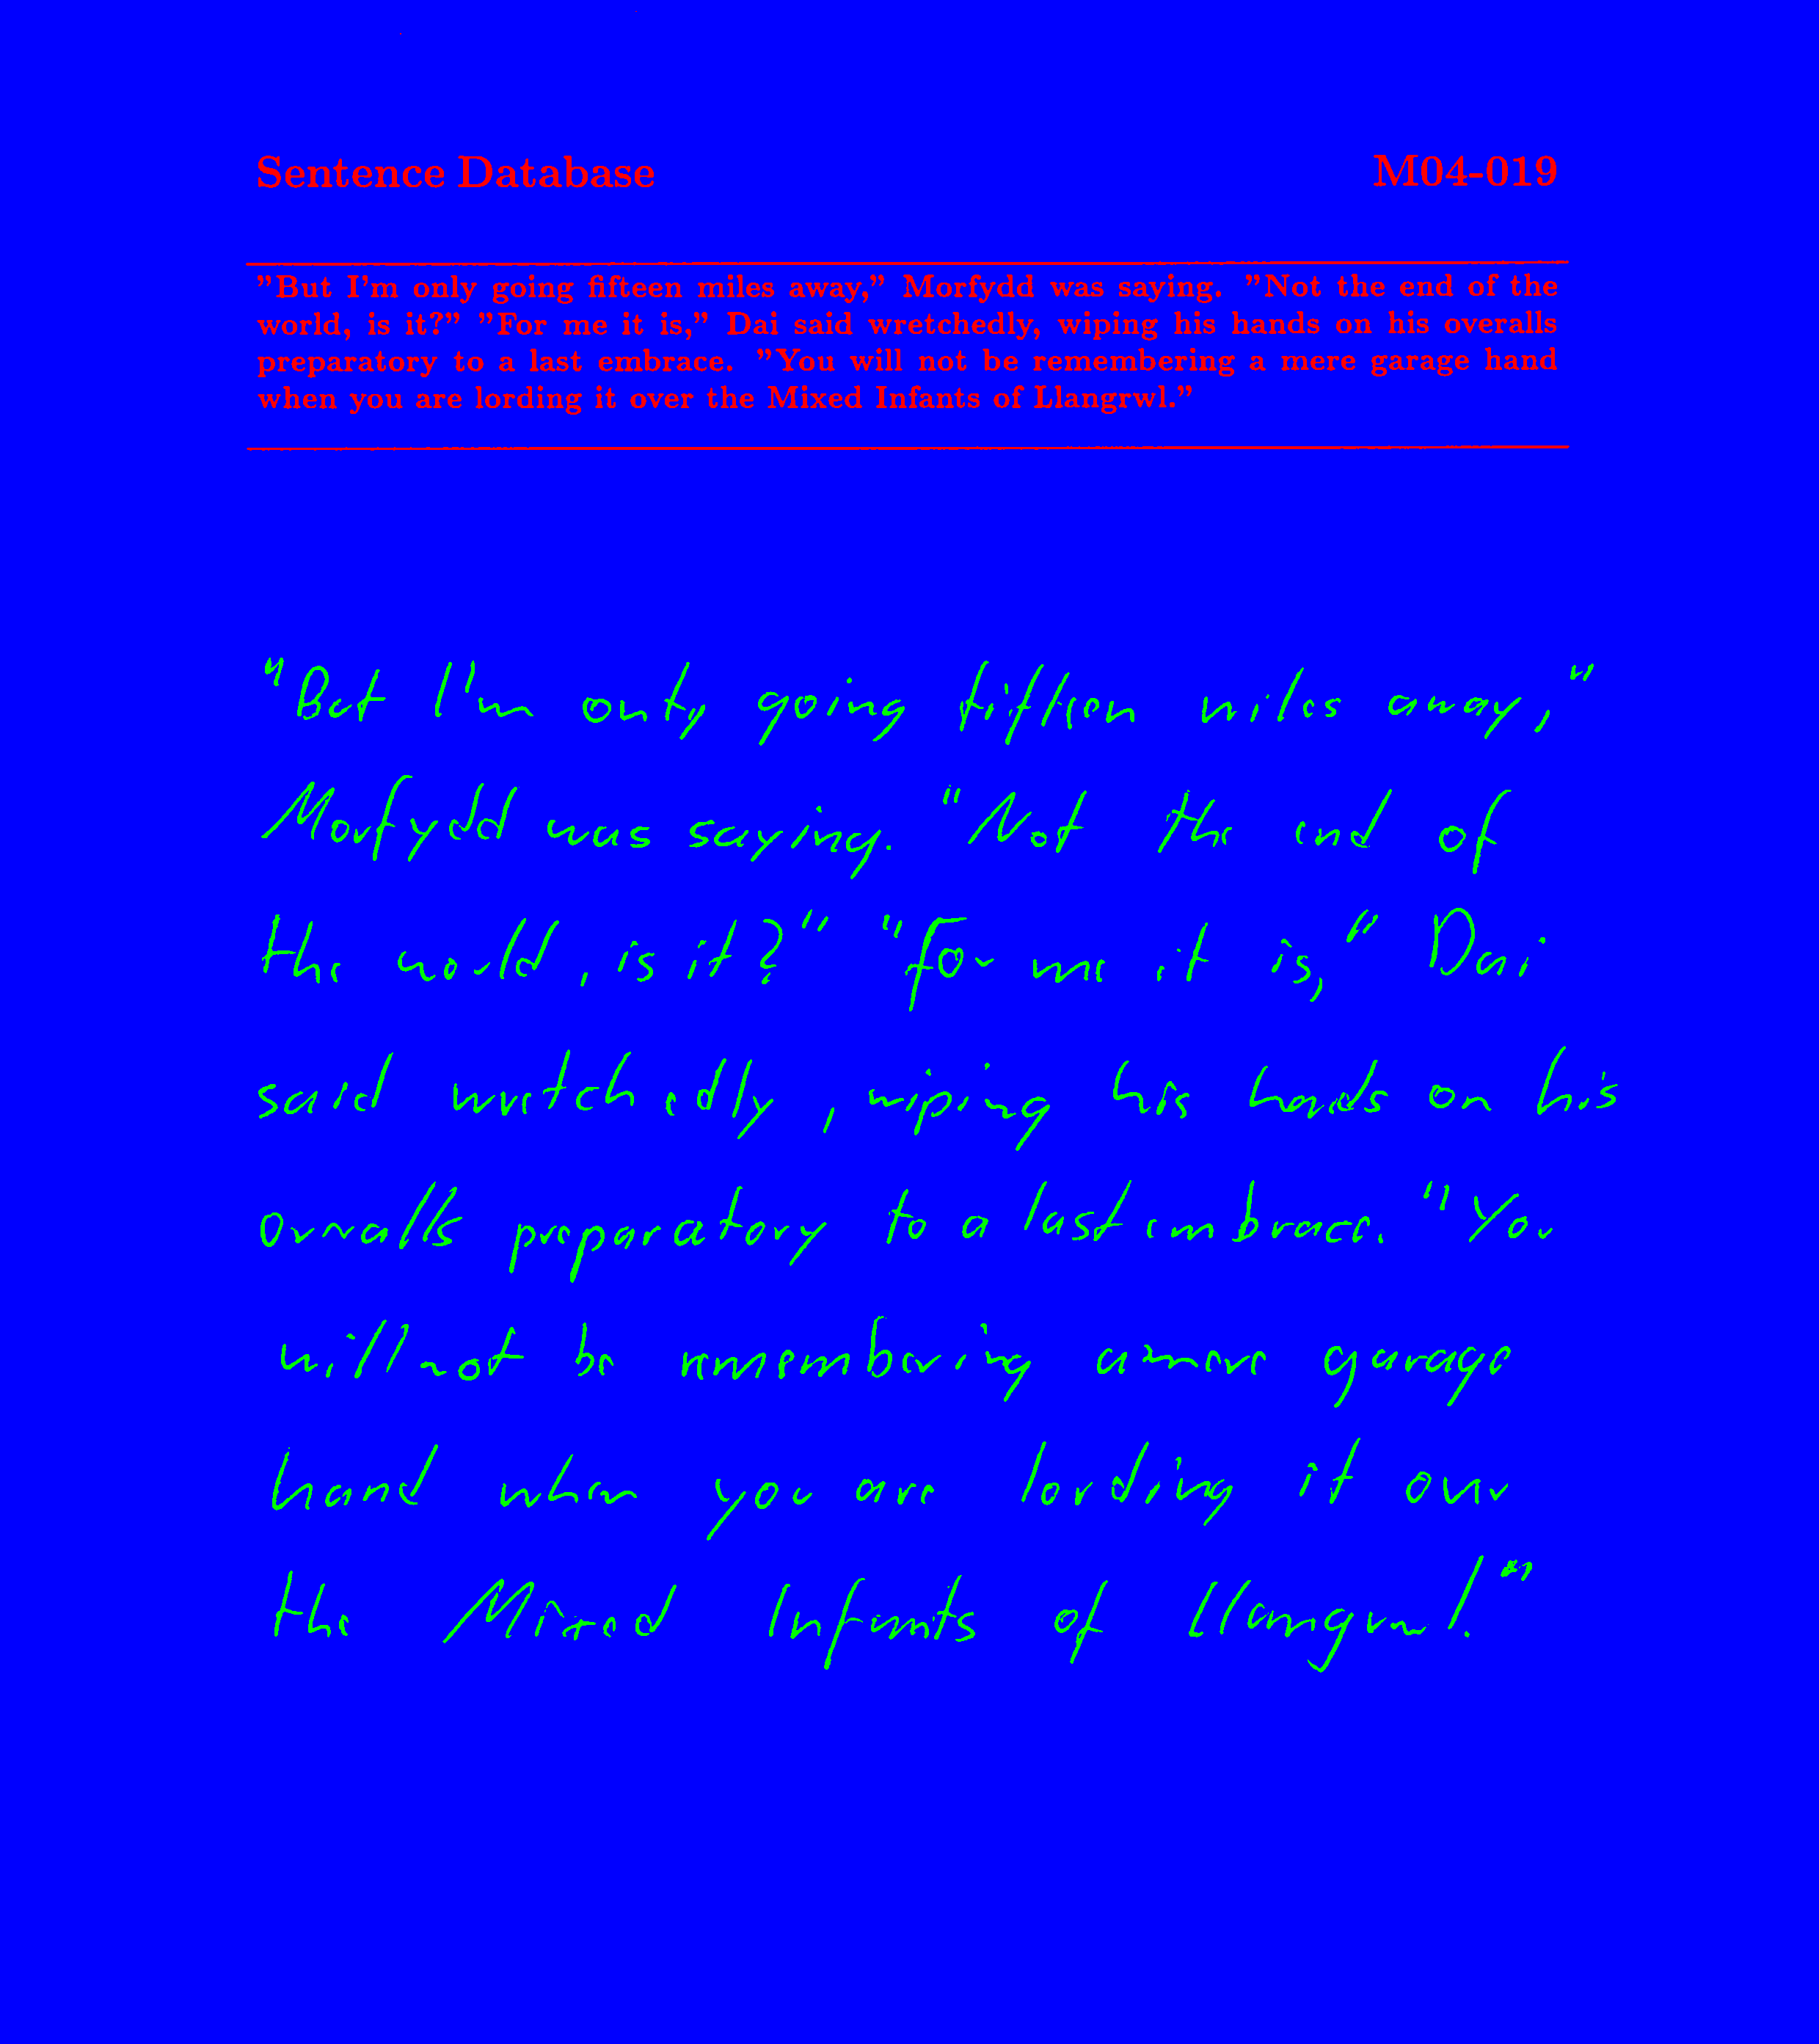 Sentence Database M04-019
"But I'm only going fifteen miles away," Morfydd was saying. "Not the end of the
world, is it?" "For me it is," Dai said wretchedly, wiping his hands on his overalls
preparatory to a last embrace. "You will not be remembering a mere garage hand
when you are lording it over the Mixed Infants of Llangrwl."
"But I'm only going fifteen miles away,"
Morfydd was saying. "Not the end of
the world, is it?" "For me it is," Dai
said wretchedly, wiping his hands on his
overalls preparatory to a last embrace. "You
will not be remembering a mere garage
hand when you are lording it over
the Mixed Infants of Llangrwl."